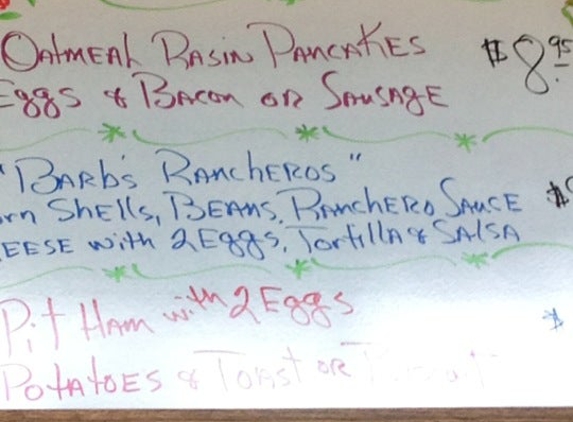 OATMEAL RASIN PANCAKES $8.95
Eggs & BACON OR SAUSAGE
"BARB'S RANCHEROS"
rn SHElls, BEANS, RANCHERO SAUCE $
EESE with 2 Eggs, TortillA & SAlSA
Pit HAM with 2 Eggs $
POTATOES & TOAST OR